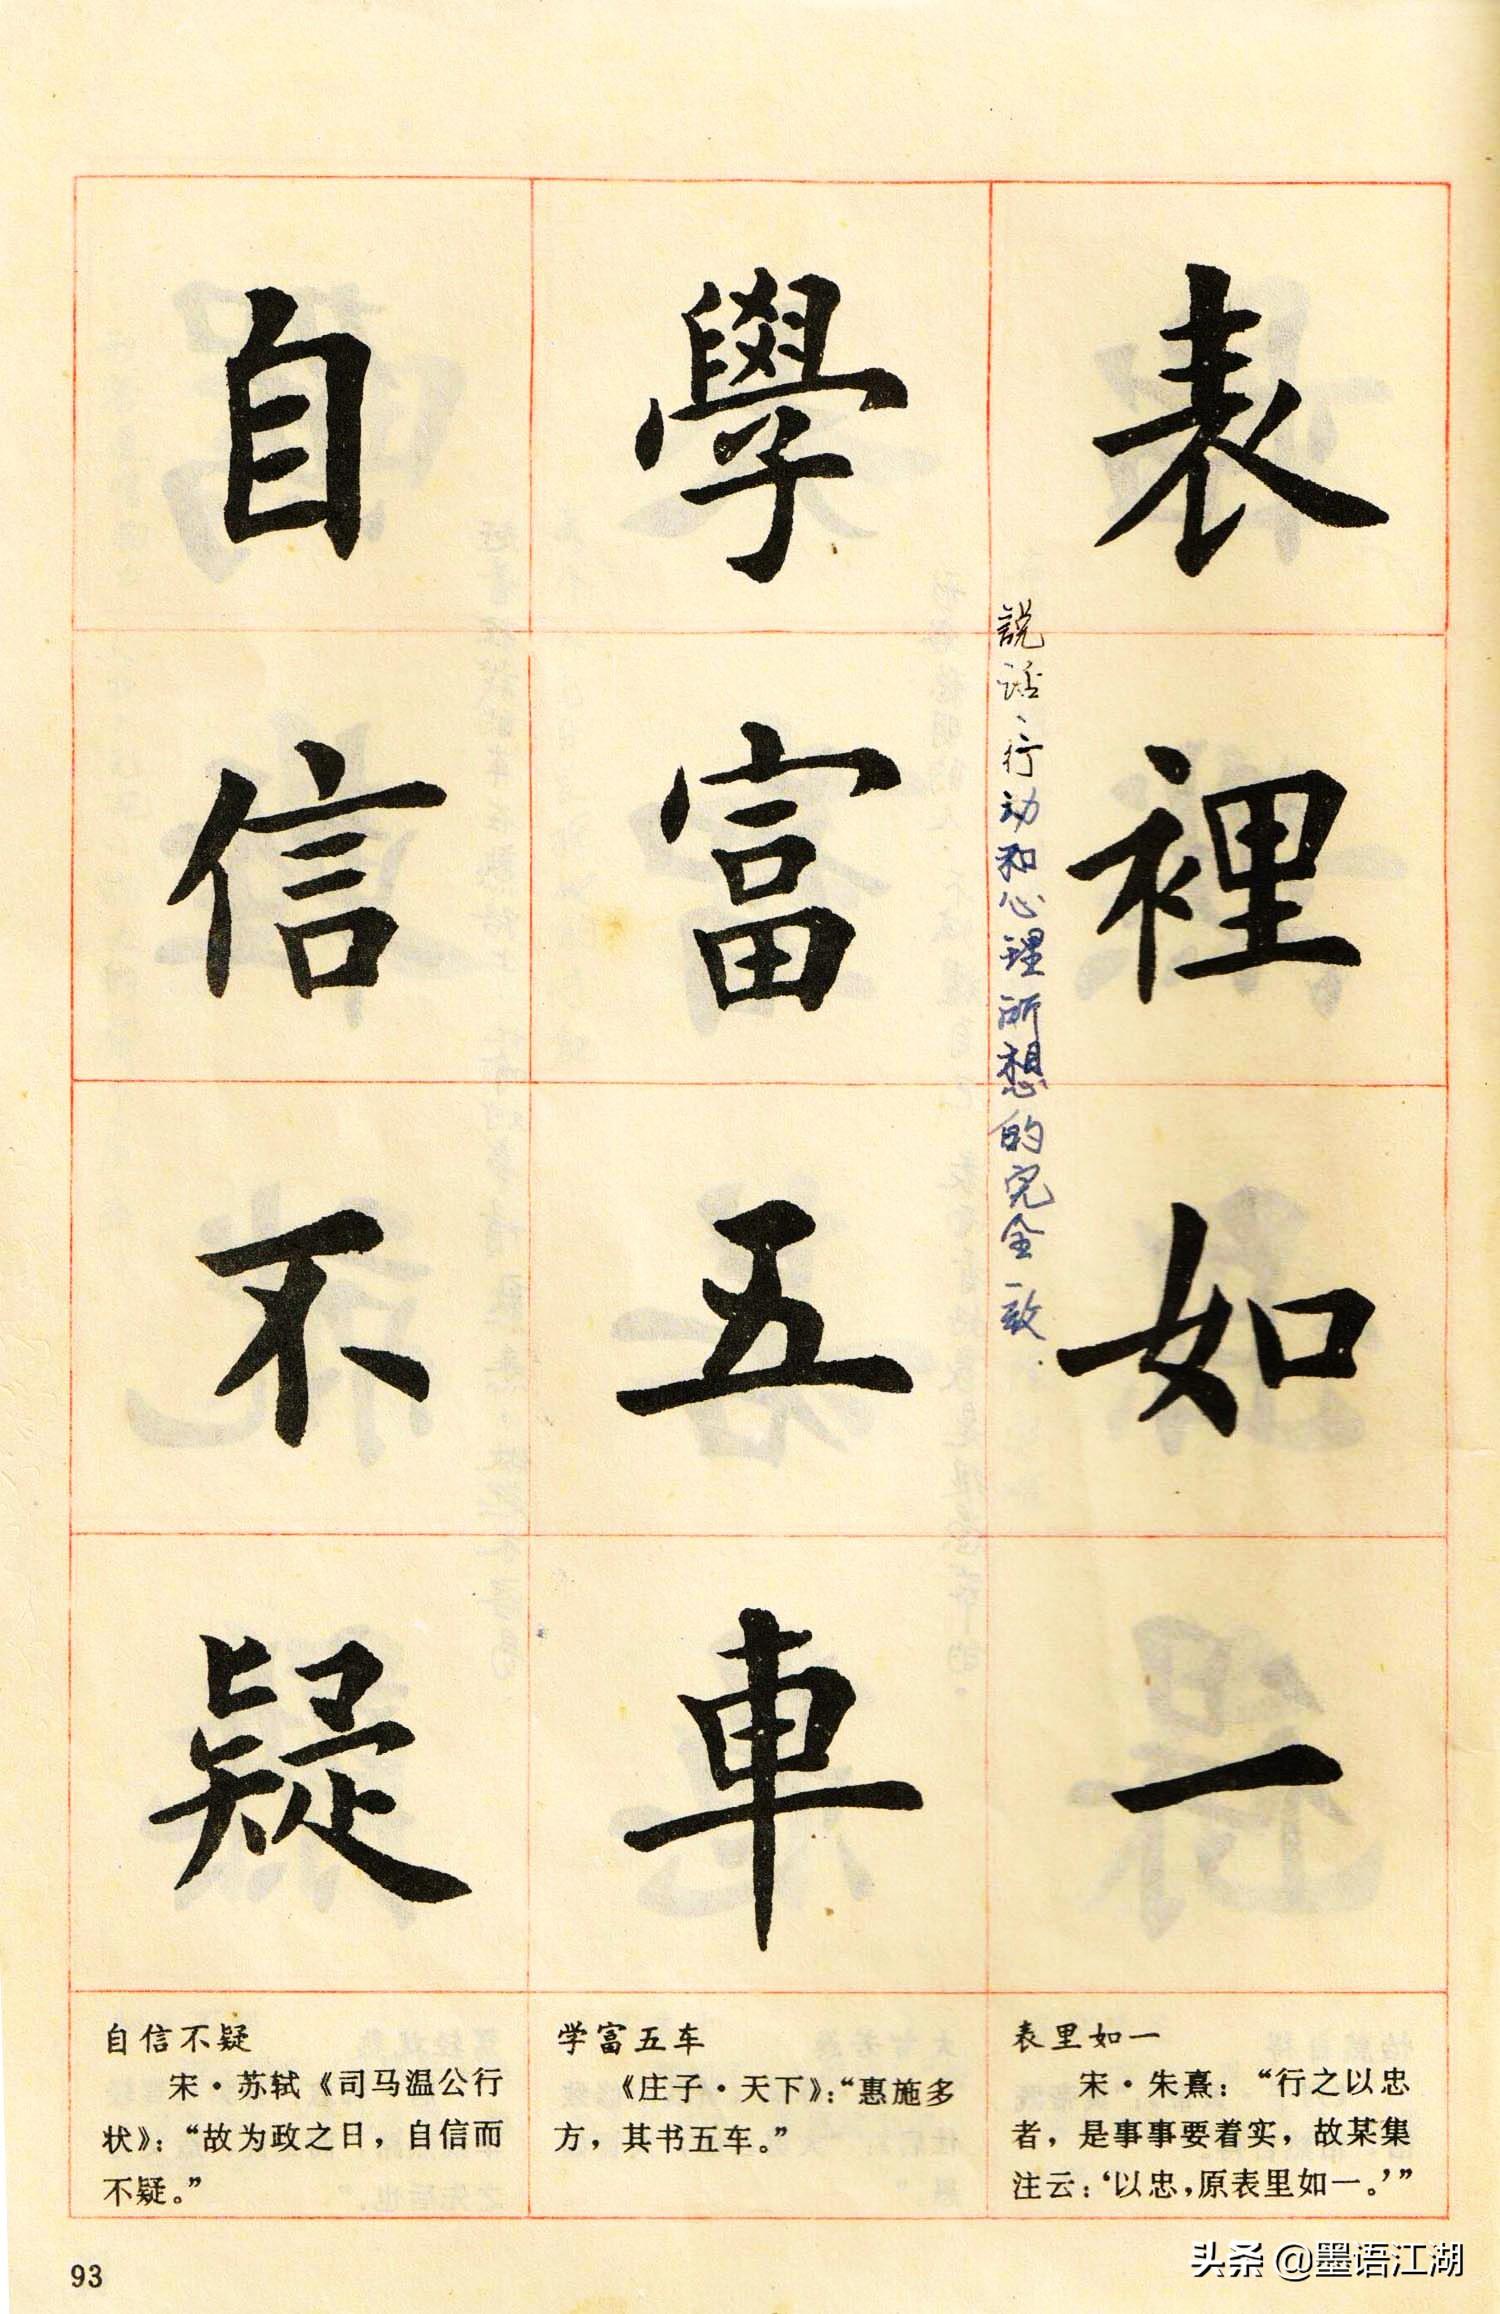 表裡如一
説话、行动和心理所想的完全一致
學富五車
自信不疑
表里如一
宋·朱熹：“行之以忠
者，是事事要着实，故某集
注云：‘以忠，原表里如一。’”
学富五车
《庄子·天下》：“惠施多
方，其书五车。”
自信不疑
宋·苏轼《司马温公行
状》：“故为政之日，自信而
不疑。”
93
头条 @墨语江湖